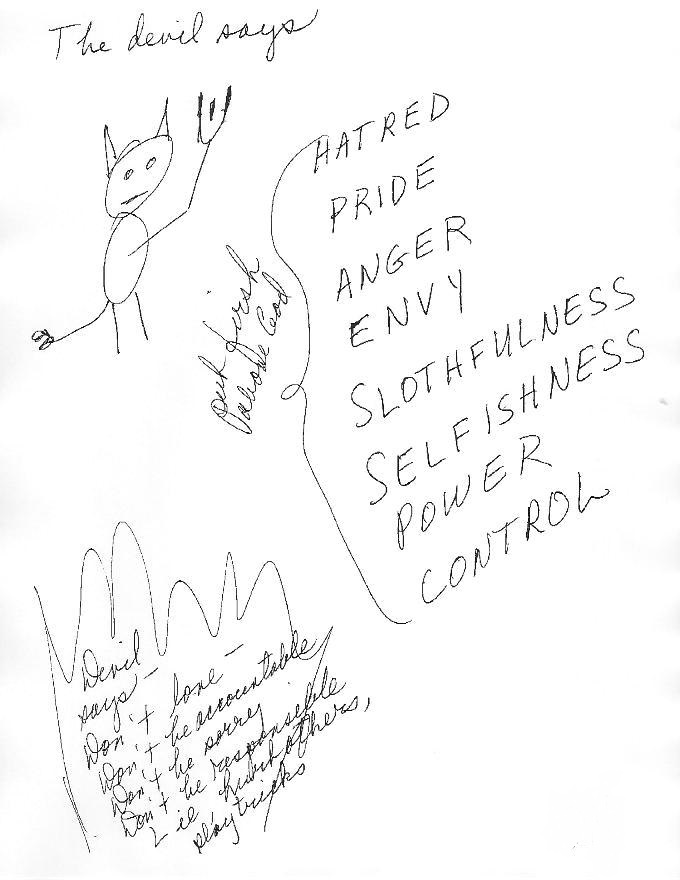 The devil says
HATRED
PRIDE
ANGER
ENVY
SLOTHFULNESS
SELFISHNESS
POWER
CONTROL
Devil
says -
Don't love -
Don't be accountable
Don't be sorry
Don't be responsible
Lie, others,
play tricks